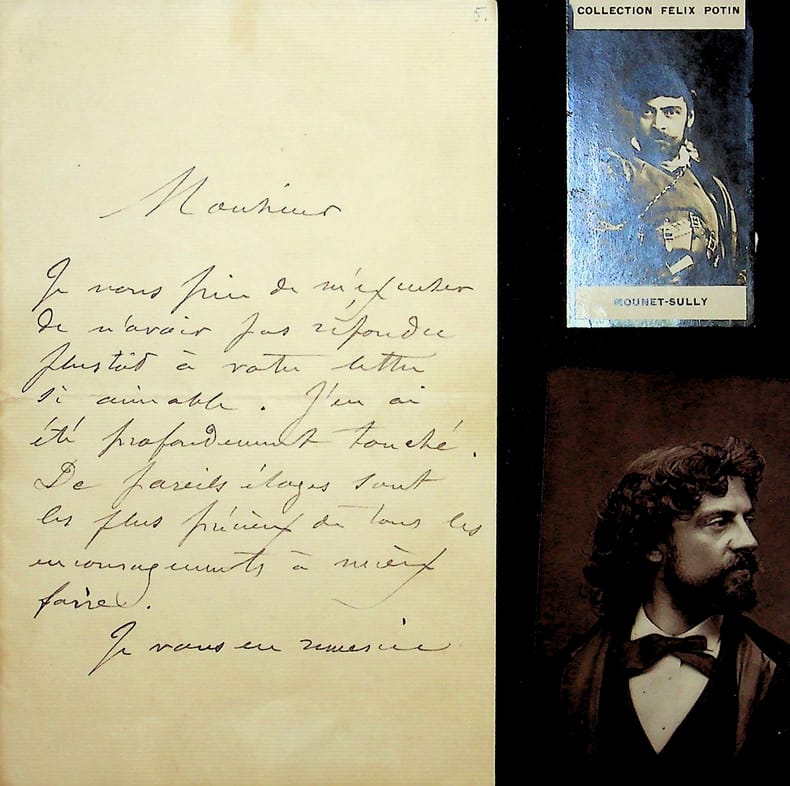 5.
Monsieur
Je vous prie de m'excuser
de n'avoir pas répondu
plustôt à votre lettre
si aimable. J'en ai
été profondement touché.
De pareils éloges sont
les plus précieux de tous les
encouragements à mieux
faire.
Je vous en remercie
COLLECTION FÉLIX POTIN
MOUNET-SULLY